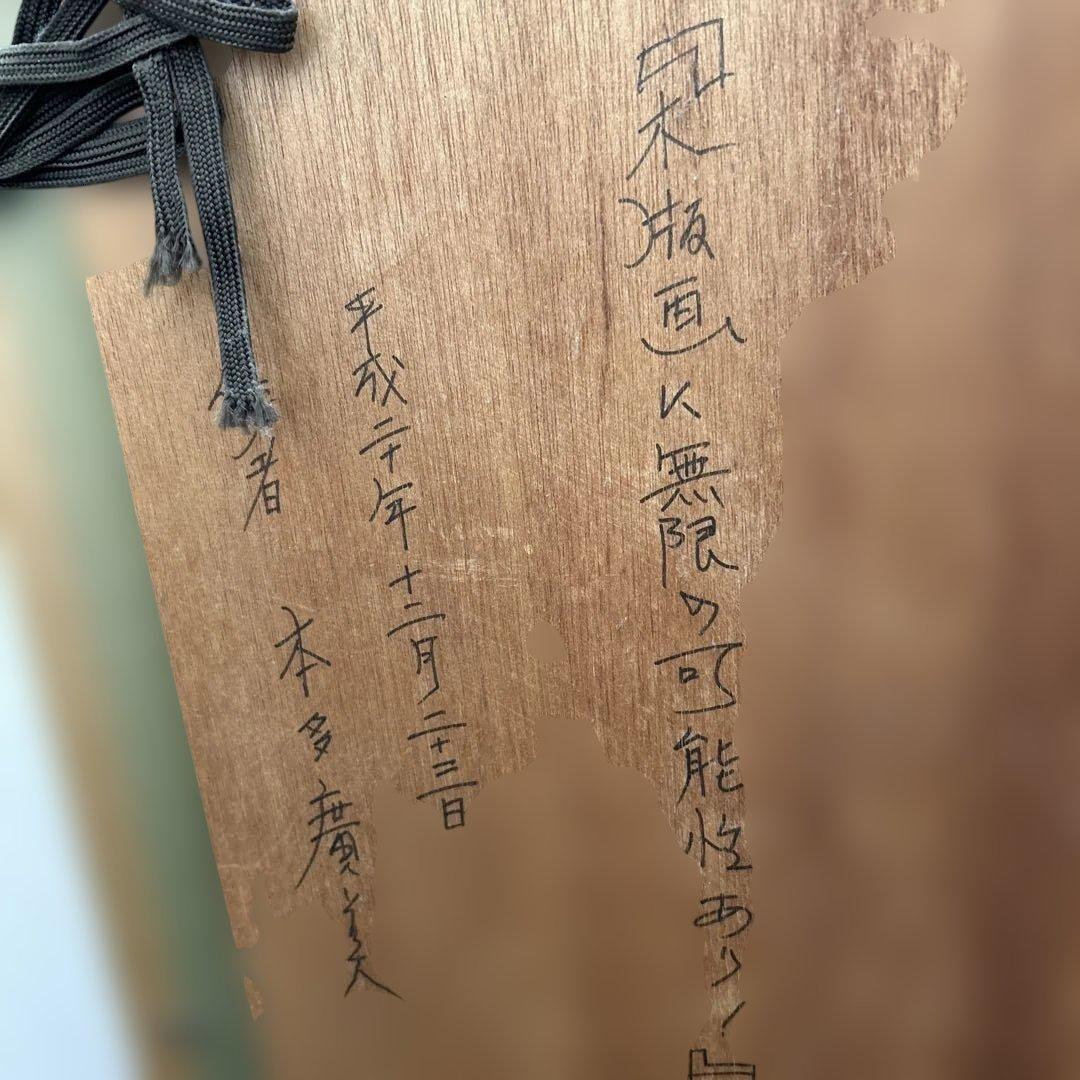 『木版画に無限の可能性あり！』
平成二十年十二月二十三日
者 本多廣美